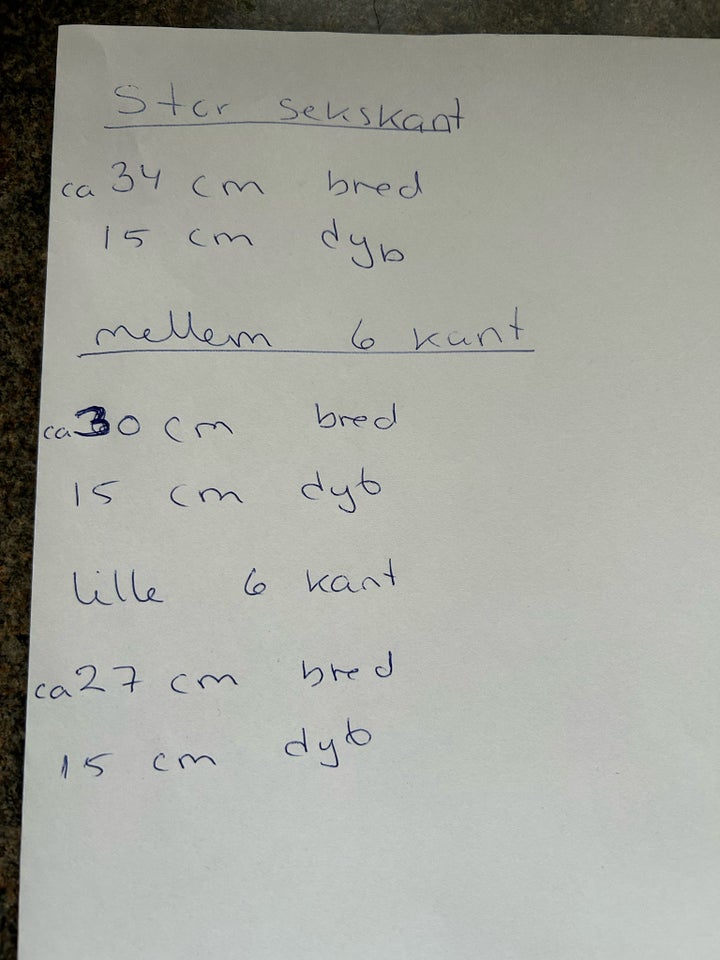 Stor sekskant
ca 34 cm bred
15 cm dyb
mellem 6 kant
ca 30 cm bred
15 cm dyb
lille 6 kant
ca 27 cm bred
15 cm dyb